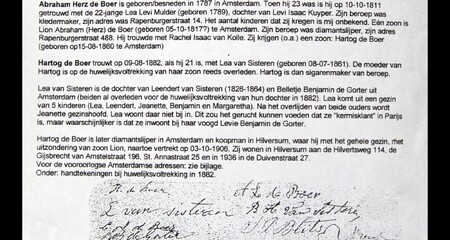 Abraham Herz de Boer is geboren/besneden in 1787 in Amsterdam. Toen hij 23 was is hij op 10-10-1811
getrouwd met de 22-jarige Lea Levi Mulder (geboren 1789), dochter van Levi Isaac Kuyper. Zijn beroep was
kledermaker, zijn adres was Rapenburgerstraat 14. Het aantal kinderen dat zij kregen is mij onbekend. Eén zoon is
Lion Abraham (Herz) de Boer (geboren 05-10-181??) te Amsterdam. Zijn beroep was diamantslijper, zijn adres
Rapenburgerstraat 488. Hij trouwde met Rachel Isaac van Kolle. Zij krijgen (o.a.) een zoon: Hartog de Boer
(geboren op15-08-1860 te Amsterdam)
Hartog de Boer trouwt op 09-08-1882, als hij 21 is, met Lea van Sisteren (geboren 08-07-1861). De moeder van
Hartog is op de huwelijksvoltrekking van haar zoon reeds overleden. Hartog is dan sigarenmaker van beroep.
Lea van Sisteren is de dochter van Leendert van Sisteren (1826-1864) en Belletje Benjamin de Gorter uit
Amsterdam (beiden al overleden voor de huwelijksvoltrekking van hun dochter in 1882). Lea komt uit een gezin
van 5 kinderen (Lea, Leendert, Jeanette, Benjamin en Margaretha). Na het overlijden van beide ouders wordt
Jeanette gezinshoofd. Lea woont daar niet bij in. Dit zou het gerucht kunnen voeden dat ze "kermisklant" in Parijs
is, maar waarschijnlijker is dat ze inwoont bij haar voogd Levie Benjamin de Gorter.
Hartog de Boer is later diamantslijper in Amsterdam en koopman in Hilversum, waar hij met het gehele gezin, met
uitzondering van zoon Lion, naartoe vertrekt op 03-10-1906. Zij wonen in Hilversum aan de Hilvertsweg 114, de
Gijsbrecht van Amstelstraat 196, St. Annastraat 25 en in 1936 in de Duivenstraat 27.
Voor de voorhoorlogse Amsterdamse adressen: zie bijlage.
Onder: handtekeningen bij huwelijksvoltrekking in 1882.
L. van Sisteren